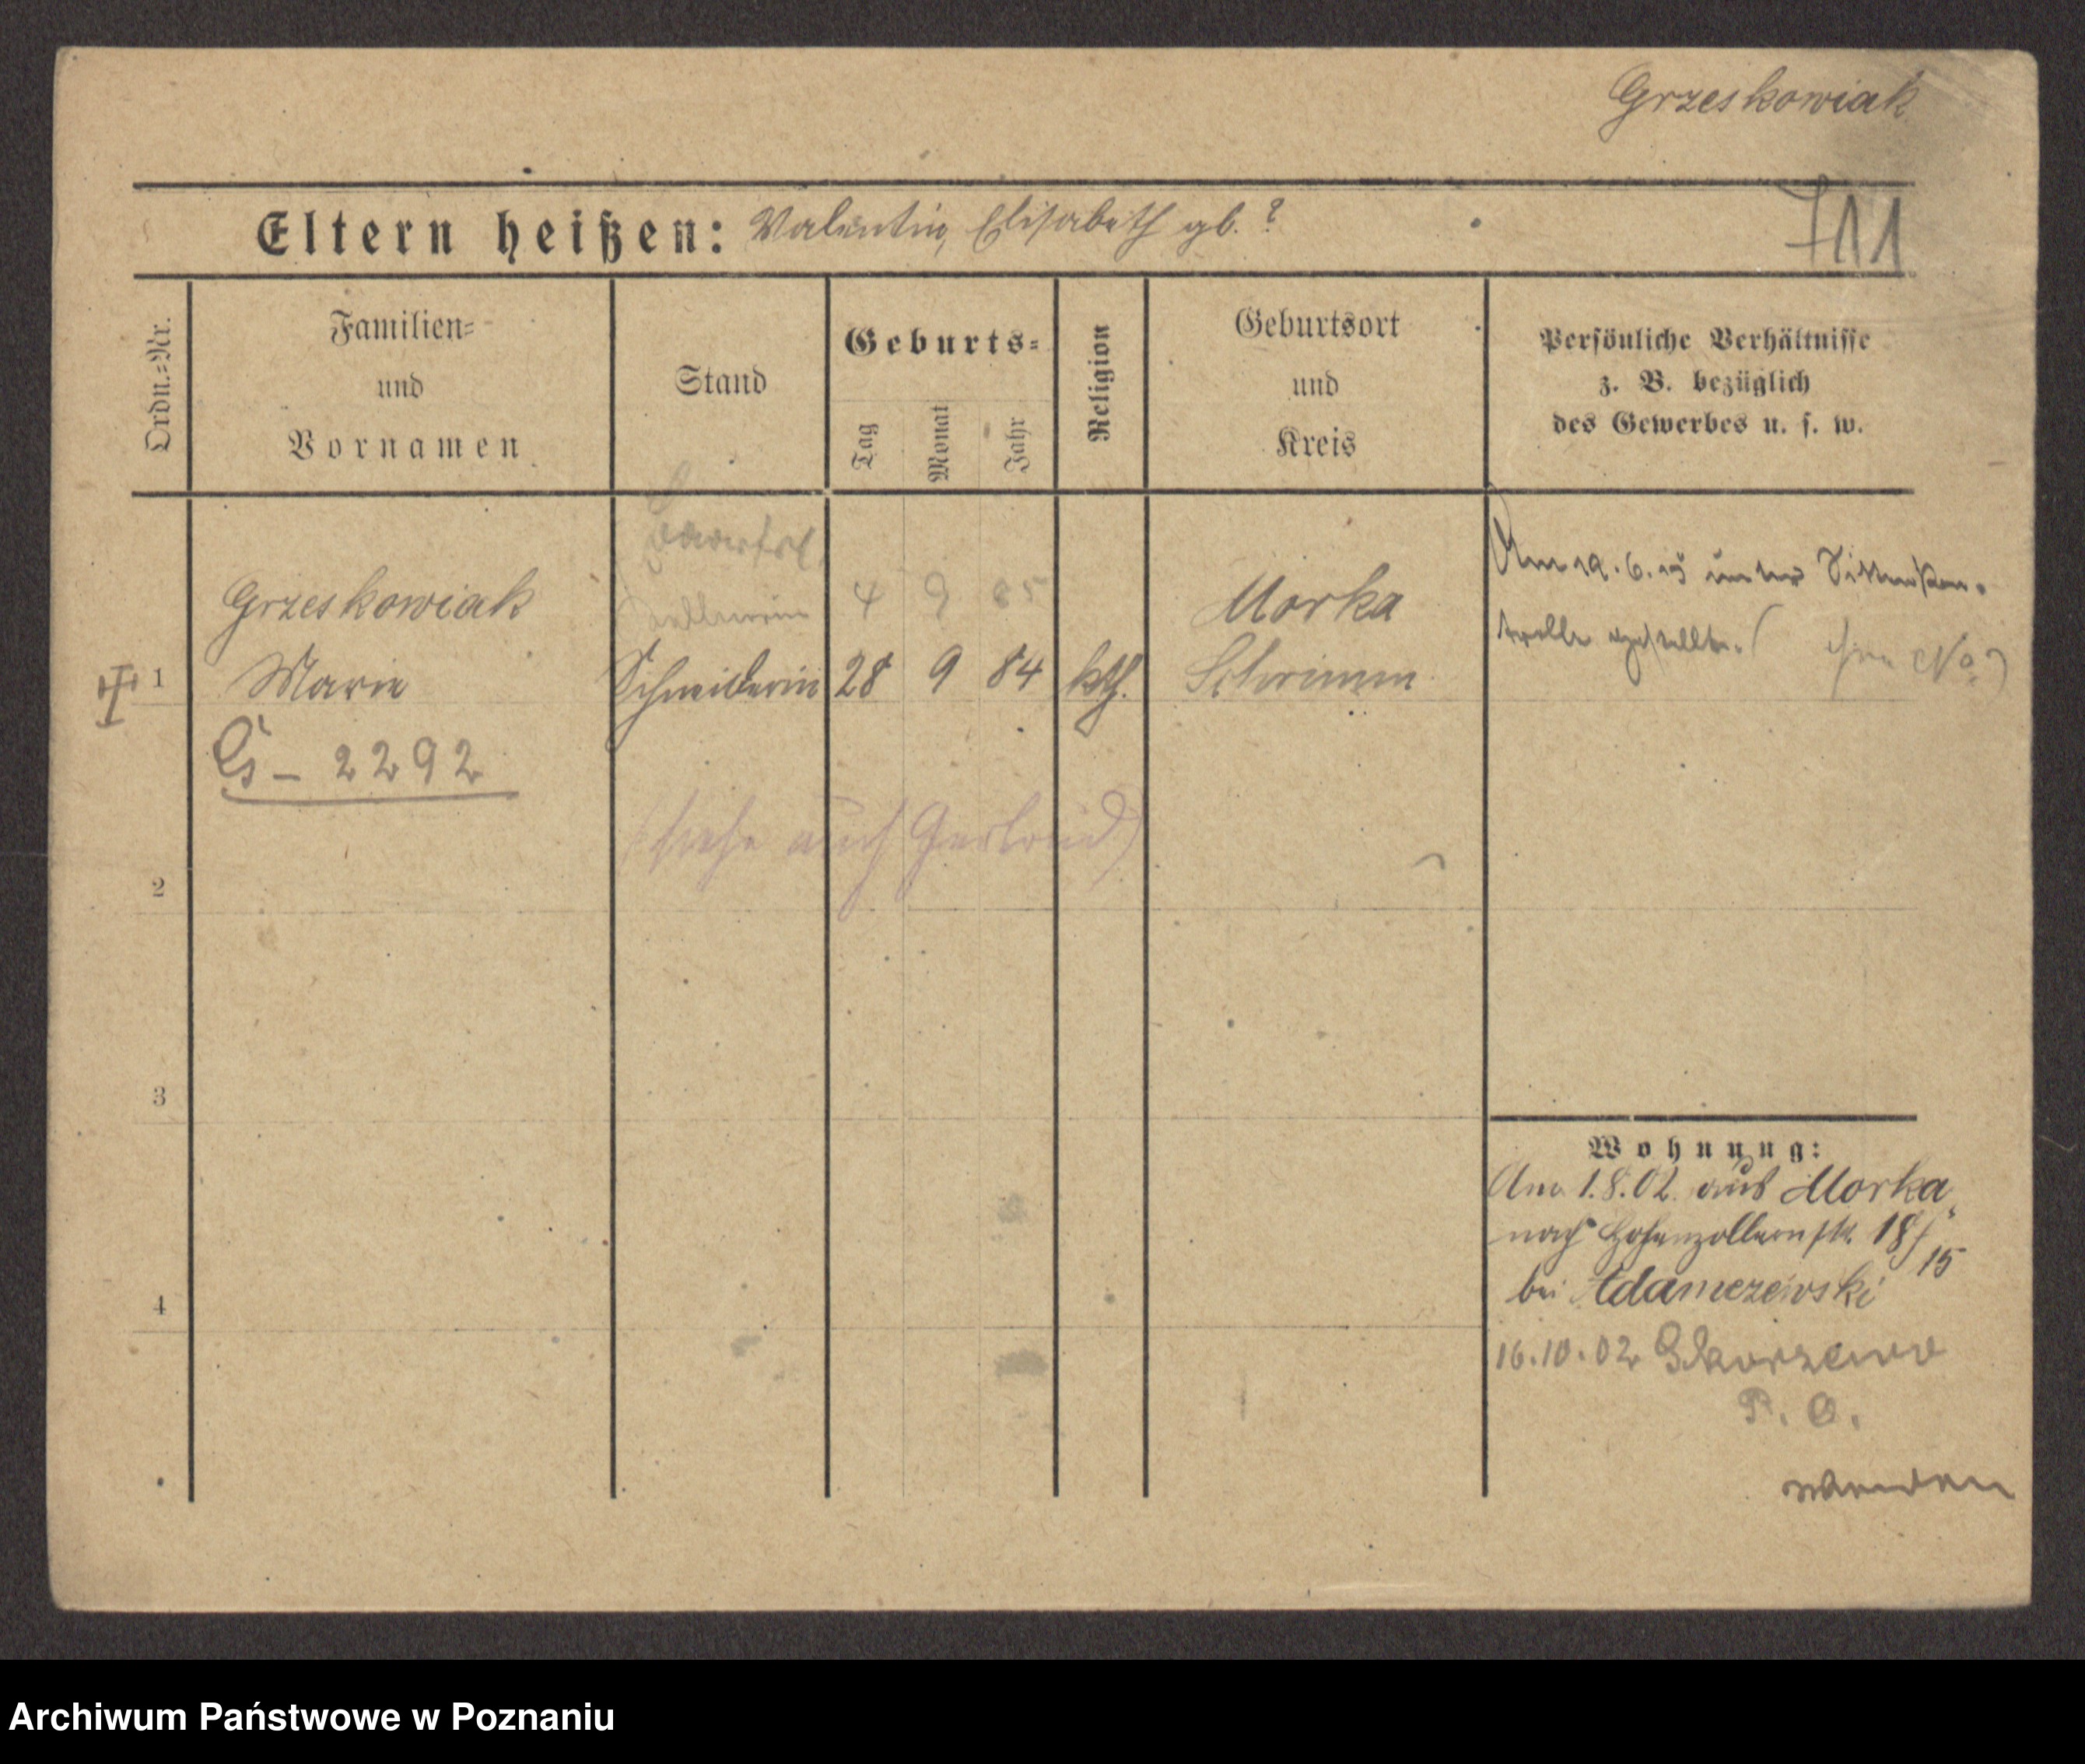 Grzeskowiak
Eltern heißen: Valentin, Elisabeth gb. ?
711
Ordn.=Nr.
Familien=
und
Vornamen
Stand
Geburts=
Tag
Monat
Jahr
Religion
Geburtsort
und
Kreis
Persönliche Verhältnisse
z. B. bezüglich
des Gewerbes u. s. w.
Grzeskowiak
Kellnerin 4 9 85
Morka
Am 19. 6. 15 unter Sittenkon-
trolle gestellt.
1 Marie Schneiderin 28 9 84 kth. Schrimm
Gs - 2292
(siehe auch
2
3
4
Wohnung:
Am 1.8.02. aus Morka,
nach Hohenzollernstr. 18/15
bei Adamczewski
16.10.02 Skorzewo
P. O.
wenden
Archiwum Państwowe w Poznaniu